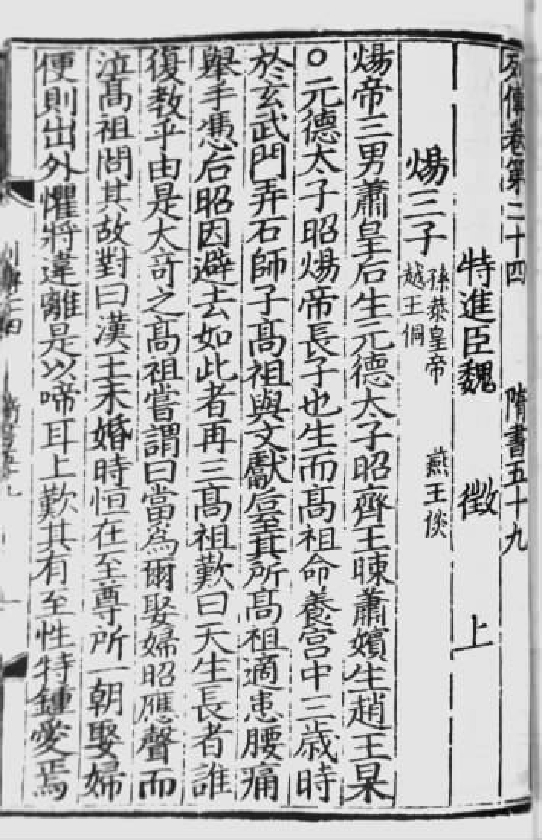 列傳卷第二十四 隋書五十九
特進臣魏 徵 上
煬三子 孫恭皇帝 燕王倓
越王侗
煬帝三男蕭皇后生元德太子昭齊王暕蕭嬪生趙王杲
○元德太子昭煬帝長子也生而高祖命養宮中三歲時
於玄武門弄石師子高祖與文獻后至其所高祖適患腰痛
舉手憑后昭因避去如此者再三高祖歎曰天生長者誰
復教乎由是大奇之高祖嘗謂曰當爲爾娶婦昭應聲而
泣高祖問其故對曰漢王未婚時恒在至尊所一朝娶婦
便則出外懼將違離是以啼耳上歎其有至性特鍾愛焉